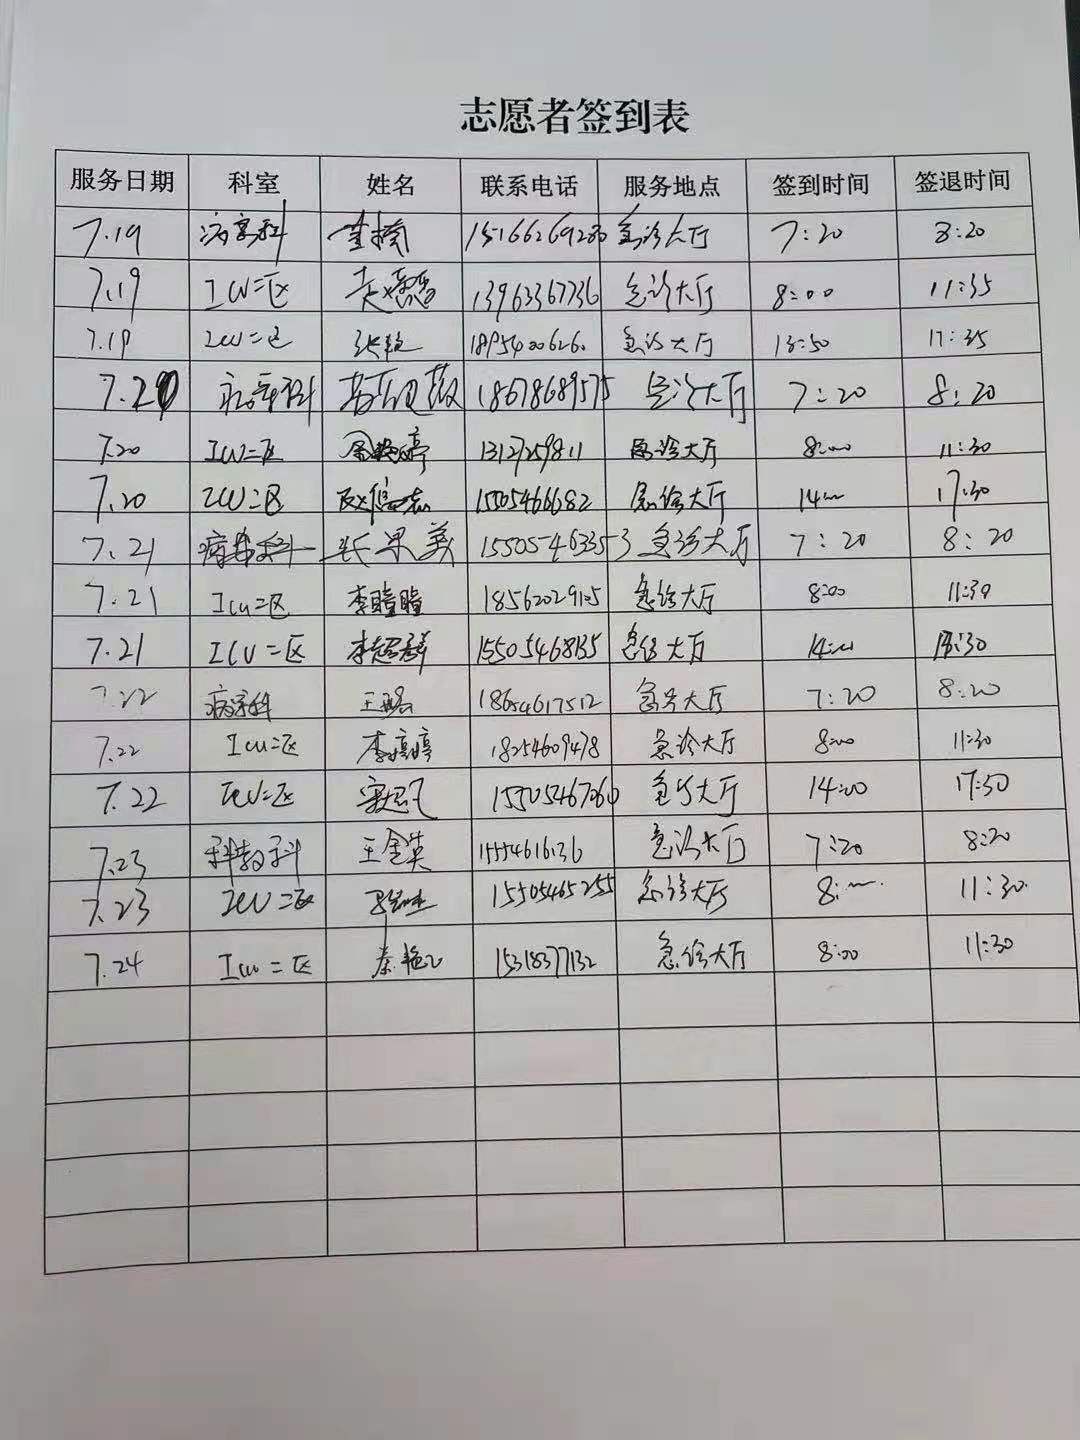 志愿者签到表
服务日期 科室 姓名 联系电话 服务地点 签到时间 签退时间
7.19 病案科 15166269280 急诊大厅 7:20 8:20
7.19 ICU二区 13963367736 急诊大厅 8:00 11:35
7.19 ICU二区 18954006260 急诊大厅 13:50 17:35
7.20 病案科 18678689575 急诊大厅 7:20 8:20
7.20 ICU二区 1312759811 急诊大厅 8:00 11:30
7.20 ICU二区 15505466682 急诊大厅 14:00 17:30
7.21 病案科 张果美 15505463353 急诊大厅 7:20 8:20
7.21 ICU二区 李瞳瞳 18562029105 急诊大厅 8:00 11:30
7.21 ICU二区 李超群 15505468135 急诊大厅 14:00 17:30
7.22 病案科 王璐 18654617512 急诊大厅 7:20 8:20
7.22 ICU二区 李婷婷 18254609478 急诊大厅 8:00 11:30
7.22 ICU二区 15505467060 急诊大厅 14:00 17:30
7.23 科教科 王金英 15554616136 急诊大厅 7:20 8:20
7.23 ICU二区 15505465255 急诊大厅 8:00 11:30
7.24 ICU二区 秦艳 15318377132 急诊大厅 8:00 11:30